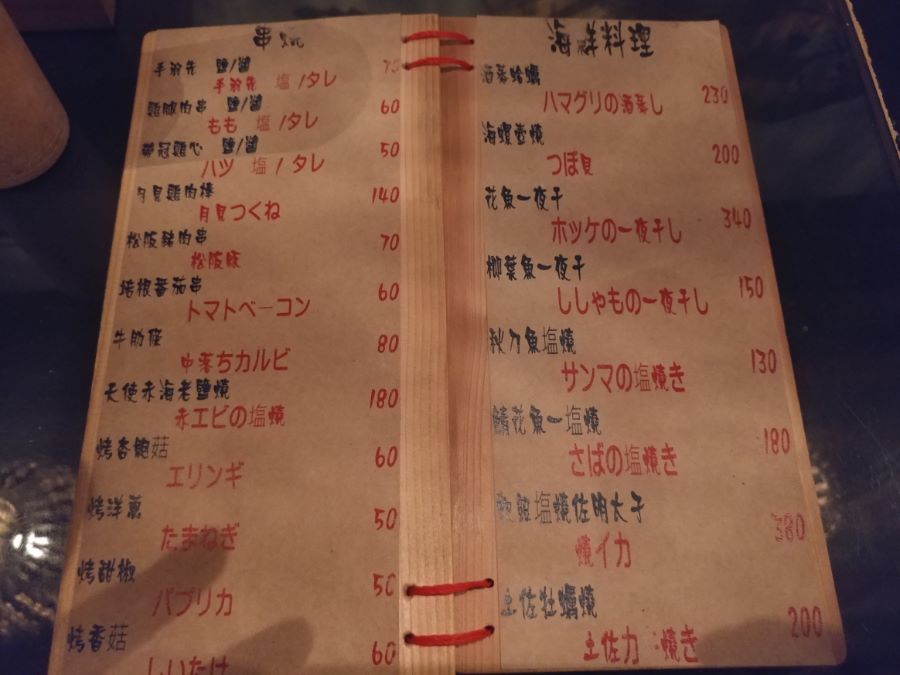 串燒
手羽先 鹽/醬 70
手羽先 塩/タレ
雞腿肉串 鹽/醬 60
もも 塩/タレ
帶冠雞心 鹽/醬 50
ハツ 塩/タレ
月見雞肉棒 140
月見つくね
松阪豬肉串 70
松阪豚
培根番茄串 60
トマトベーコン
牛肋條 80
中落ちカルビ
天使赤海老鹽燒 180
赤エビの塩燒
烤杏鮑菇 60
エリンギ
烤洋蔥 50
たまねぎ
烤甜椒 50
パプリカ
烤香菇 60
しいたけ
海鮮料理
酒蒸蛤蠣 230
ハマグリの酒蒸し
海螺壺燒 200
つぼ貝
花魚一夜干 340
ホッケの一夜干し
柳葉魚一夜干 150
ししゃもの一夜干し
秋刀魚塩燒 130
サンマの塩燒き
鯖花魚一塩燒 180
さばの塩燒き
塩燒佐明太子 380
燒イカ
土佐牡蠣燒 200
土佐カ 燒き